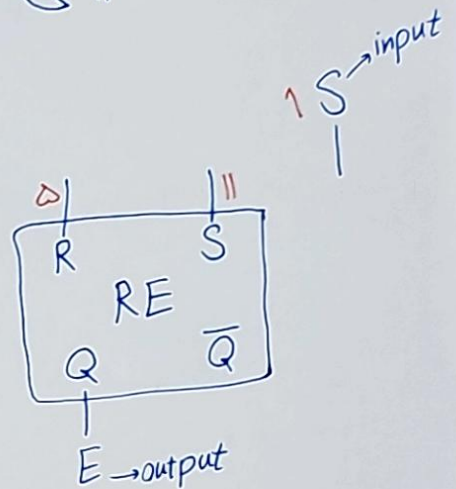 S → input
R S
RE
Q Q̅
E → output